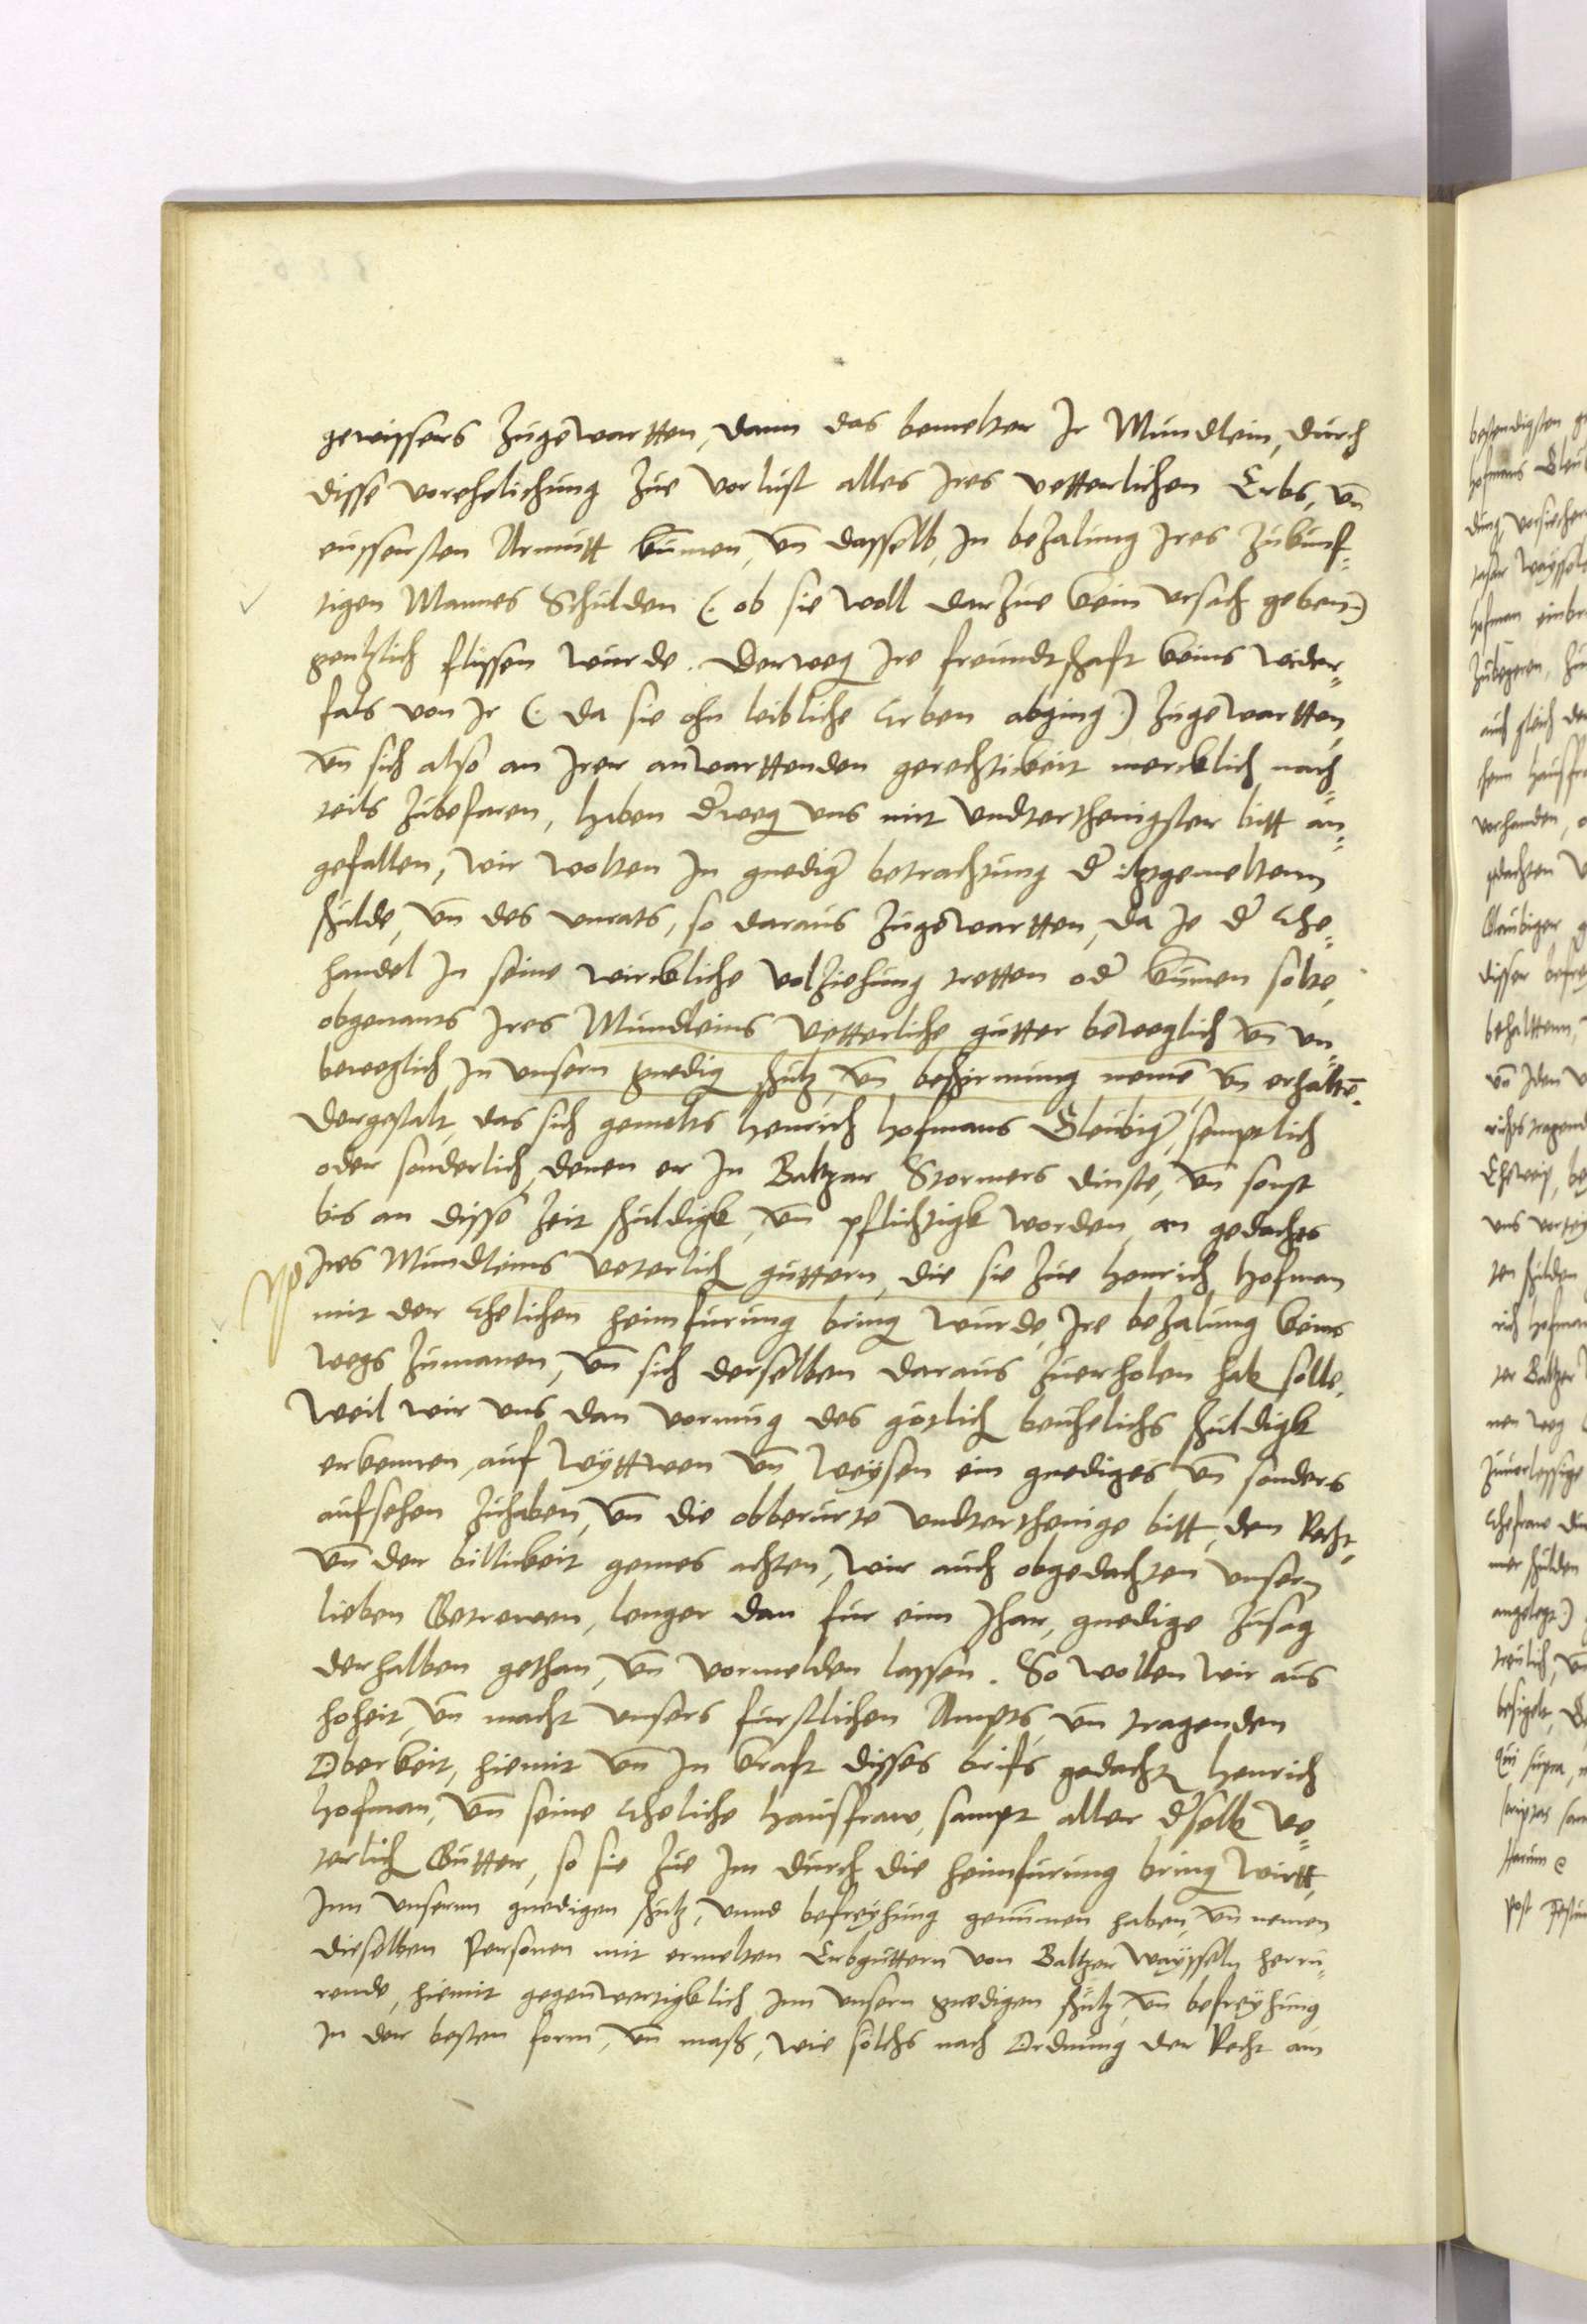 gewissers zugewartten, dann das bemelter Ir Mundlein, durch
disse vorehelichung zue vorlust alles Ires vetterlichen Erbs, vn̄
eussersten Armutt kum̄en, vn̄ dasselb, In bezalung Ires zukunf=
tigen Mannes Schulden (: ob sie woll darzue kein vrsach geben :)
gentzlich flissen wurde. Derweg Ire freundtschaft keins wider=
fals von Ir (: da sie ohn leibliche Erben abging :) zugewartten,
vn̄ sich also an Irer anwarttenden gerechtickeit mercklich nach=
teils zubefaren, Haben derweg vns mit vndterthenigster bitt an=
gefallen, wir wolten In gnediger betrachtung der itztgemeltenn
schulde, vn̄ des vnrats, so daraus zugewartten, da Je der Ehe=
handel In seine wirckliche volziehung tretten oder kum̄en solte,
obgenants Ires Mundleins vetterliche gutter beweglich vn̄ vn=
beweglich In vnsern gnedig schutz, vn̄ beschirmung nemē vn̄ erhaltē.
Dergestalt, das sich gemelts Henrich Hofmans Gleubiger, semptlich
oder sonderlich, denen er In Baltzar Stormers dinste, vn̄ sonst
bis an disse Zeit schuldigk, vn̄ pflichtigk worden, an gedachts
Ires Mundleins veterlich guttern, die sie zue Henrich Hofman
mit der Ehelichen heimfurung bring wurde, Ire bezalung keins
wegs zumanen, vn̄ sich derselben daraus zuerholen hab solle.
Weil wir vns dan vormug des gotlich beuhelichs schuldigk
erkennen, auf wyttwen vn̄ weysen ein gnediges vn̄ sonders
aufsehen zuhaben, vn̄ die obberurte vndterthenige bitt, dem Recht,
vn̄ der billickeit gemes achten, wir auch obgedachten vnsern
lieben Getrewen, lenger dan fur eim Jhar, gnedige zusag
derhalben gethan, vn̄ vormelden lassen. So wollen wir aus
hoheit, vn̄ macht vnsers furstlichen Ampts, vn̄ tragenden
Oberkeit, hiemit vn̄ In kraft disses brifs gedacht Henrich
Hofman, vn̄ seine Eheliche Hausfraw, sampt aller derselb ve=
terlich Gutter, so sie zue Im durch die heimfurung bring wirtt,
Inn vnserm gnedigen schutz, vnnd befreyhung genummen haben, vn̄ nemen
dieselben Personen mit ermelten Erbguttern von Baltzer Wayssseln herru=
rende, hiemit gegenwertigklich Inn vnsern gnedigen schutz, vn̄ befreyhung
In der besten form, vn̄ maß, wie solchs nach Ordnung der Recht am